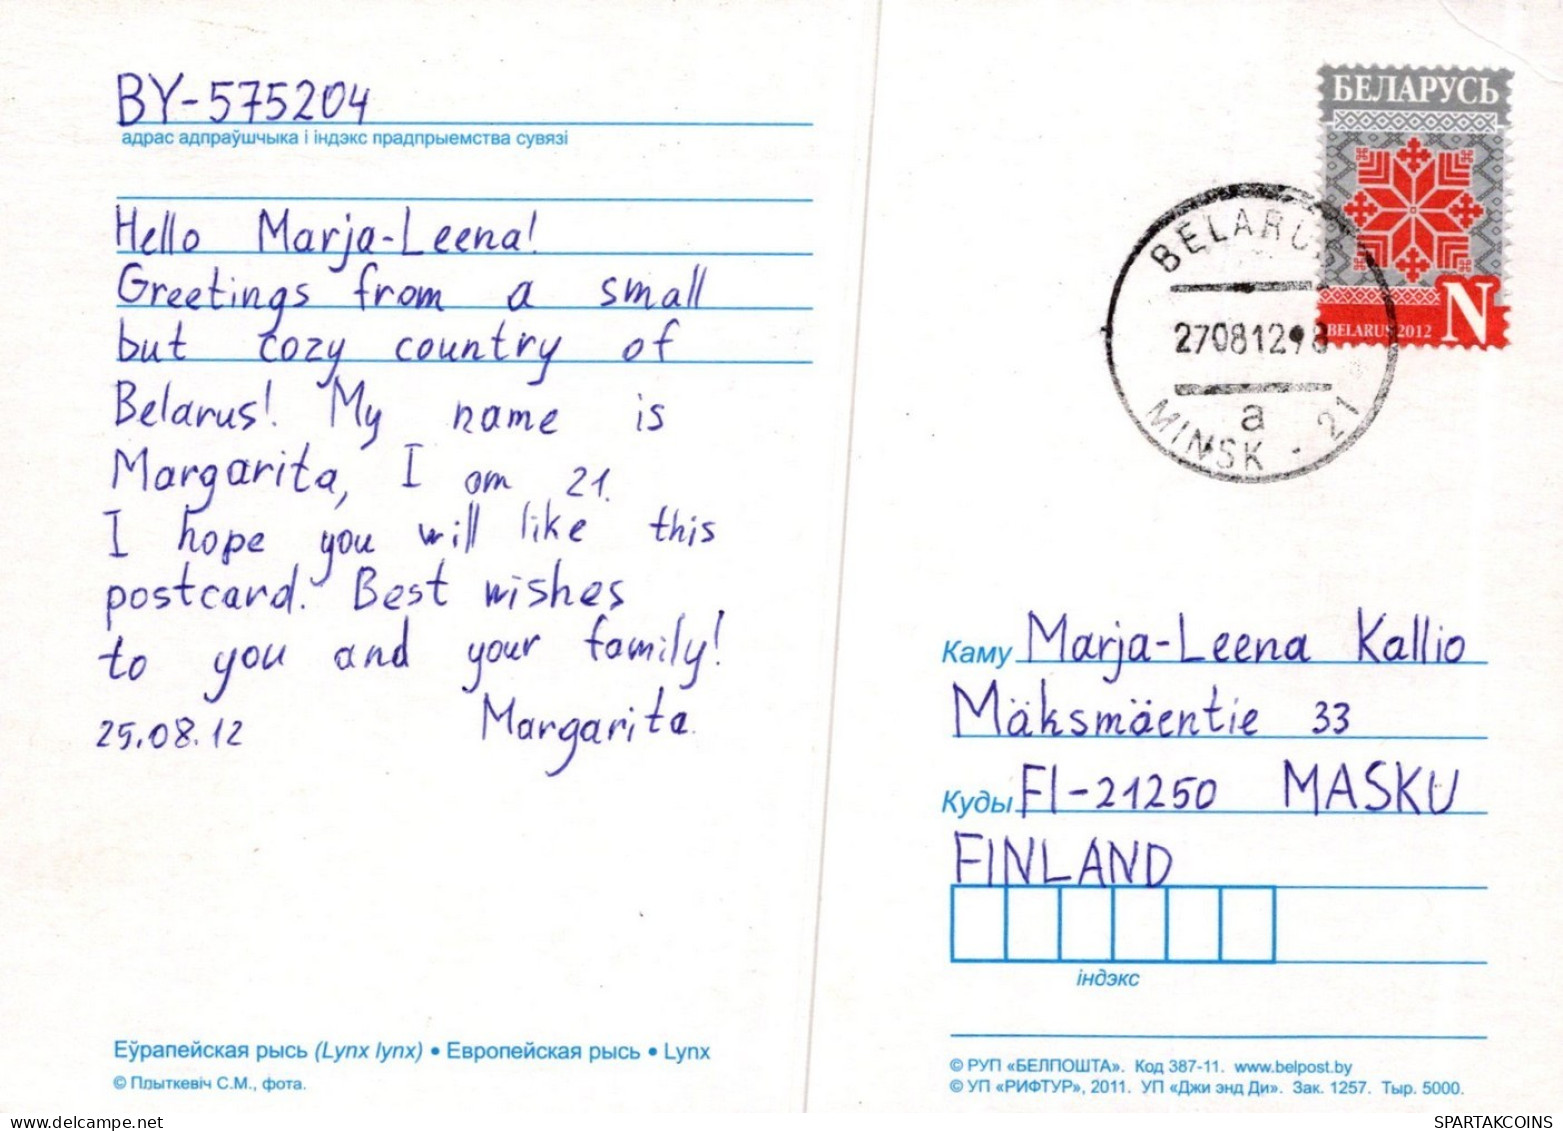 BY-575204
адрас адпраўшчыка і індэкс прадпрыемства сувязі
Hello Marja-Leena!
Greetings from a small
but cozy country of
Belarus! My name is
Margarita, I am 21.
I hope you will like this
postcard. Best wishes
to you and your family!
25.08.12 Margarita
Еўрапейская рысь (Lynx lynx) • Европейская рысь • Lynx
© Плыткевіч С.М., фота.
БЕЛАРУСЬ
BELARUS 2012 N
BELARUS
27081298
а
MINSK - 21
Каму Marja-Leena Kallio
Mäksmäentie 33
Куды FI-21250 MASKU
FINLAND
індэкс
© РУП «БЕЛПОШТА». Код 387-11. www.belpost.by
© УП «РИФТУР», 2011. УП «Джи энд Ди». Зак. 1257. Тыр. 5000.
delcampe.net
SPARTAKCOINS